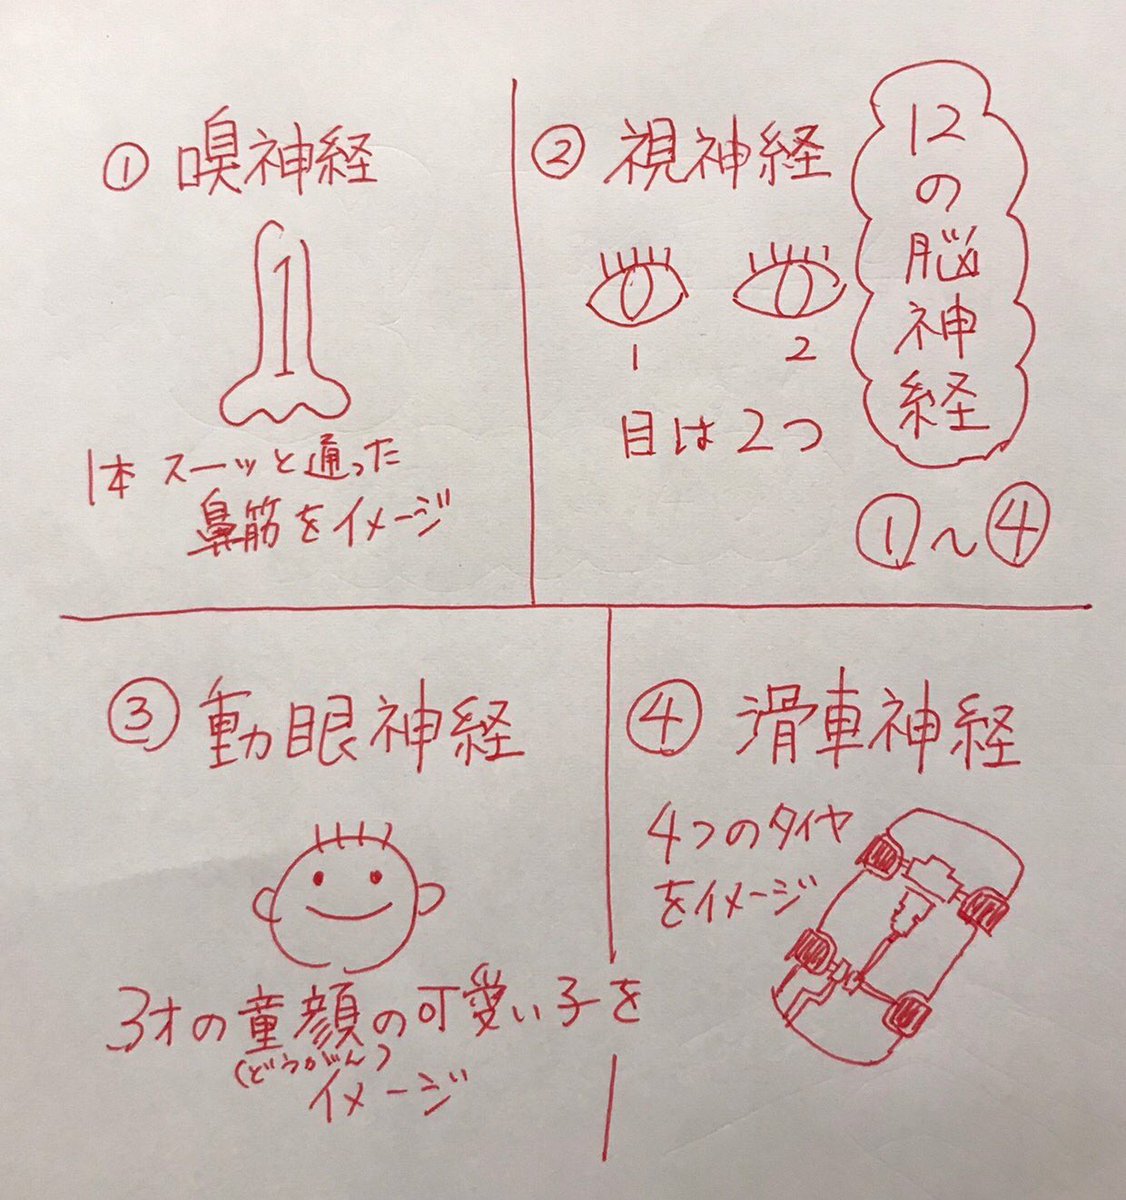 ① 嗅神経
1
1本 スーッと通った
鼻筋をイメージ
② 視神経
1 2
目は2つ
12の脳神経
①〜④
③ 動眼神経
3才の童顔の可愛い子を
(どうがん)
イメージ
④ 滑車神経
4つのタイヤ
をイメージ